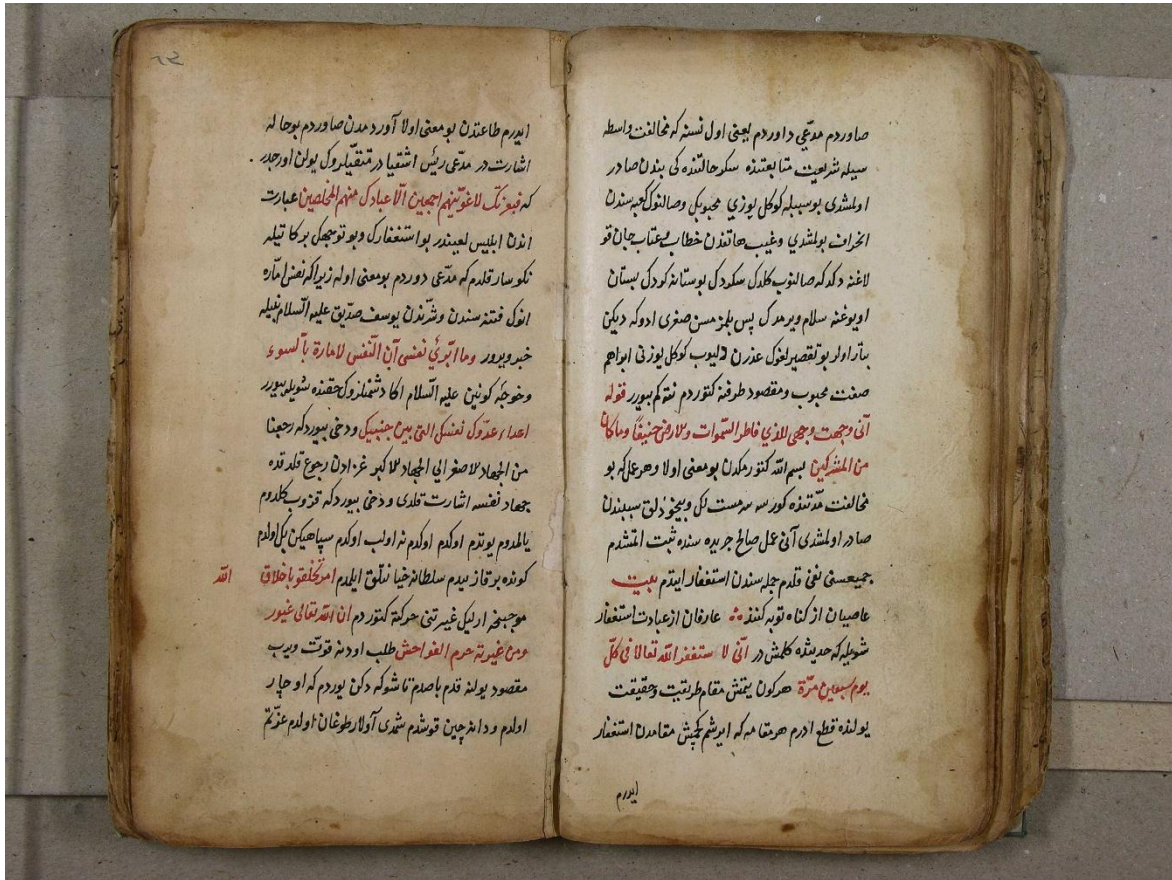 صاوردم مدّعی داوردم یعنی اول نسنه که مخالفت واسطه
سیله شریعت متابعتنده سکوحالتنده کی بندن صادر
اولمشدی بوسببله کوکل یوزی محبوبکی وصالنوک کعبه سندن
انحراف بولمشدی وغیب هاتفدن خطاب وعتاب جان قو
لاغنه دکدکه صالنوب کلدک سکودک بوستانه کودک بستان
اویوغنه سلام ویرمدک پس بلمزمسن صغری ادوکه دیکن
بتار اولر بو تقصیرلغوک عذرن دلیوب کوکل یوزنی ابراهیم
صفت محبوب ومقصود طرفنه کتوردم نته کم بیورر قوله
آنی وجهت وجهی للذی فاطر السّموات ولارض حنیفًا وماکان
من المشرکین بسم الله کتورمکدن بومعنی اولا وهر عمل که بو
مخالفت مدّتنده کورسه سرمست لکی وبیخودلق سببندن
صادر اولمشدی آنی عمل صالح جریده سنده ثبت اتمشدم
جمیعسنی نفی قلدم جمله سندن استغفار ایتدم بیت
عاصیان از کناه توبه کنند عارفان از عبادت استغفار
شویله که حدیثده کلمش در انّی لا ستغفر الله تعالا فی کلّ
یوم سبعین مرّة هرکون یتمش مقام طریقت وحقیقت
یولنده قطع ادرم هر مقامه که ایرشم کچمش مقامدن استغفار
ایدرم
ایدرم طاعتدن بومعنی اولا آوردمدن صاوردم بوحاله
اشارت در مدّعی رئیس اشقیا در متقیلروک یولن اورجدر
که فبعزتک لاغوینهم اجمعین الّا عبادک منهم المخلصین عبارت
اندن ابلیس لعیندر بو استغفارک وبو توجهک برکاتیله
نکوسار قلدم که مدّعی دوردم بومعنی اوله زیراکه نفس امّاره
انوک فتنه سندن وشرّندن یوسف صدیق علیه السّلام بیله
خبر ویرور وما ابرّئ نفسی آن النّفس لامارة بآ لسوء
وخوجهٔ کونین علیه السّلام اکا دشمنلروک حقنده شویله بیورر
اعداء عدّوک نفسکی التی بین جنبیک ودخی بیوردکه رجعنا
من الجهاد لاصغر الی الجهاد للاکبر غزادن رجوع قلدقده
جهاد نفسه اشارت قلدی ودخی بیوردکه قزوب کلدوم
یالمدوم یوتدم اوکدم اوکدم نه اولب اولدم سپاهیکن بک اولدم
کونده برقاز ییدم سلطانه خیانتلق ایلدم امر تخلقو باخلاق الله
موجبنجه ارلیک غیرتنی حرکته کتوردم ان الله تعالی غیور
ومن غیرته حرم الفواحش طلب اودنه قوّت ویرب
مقصود یولنه قدم باصدم تا شوکه دکن یوردم که اوحار
اولدم ودانه چین قوشدم شمدی آولار طوغان اولدم عزّتم